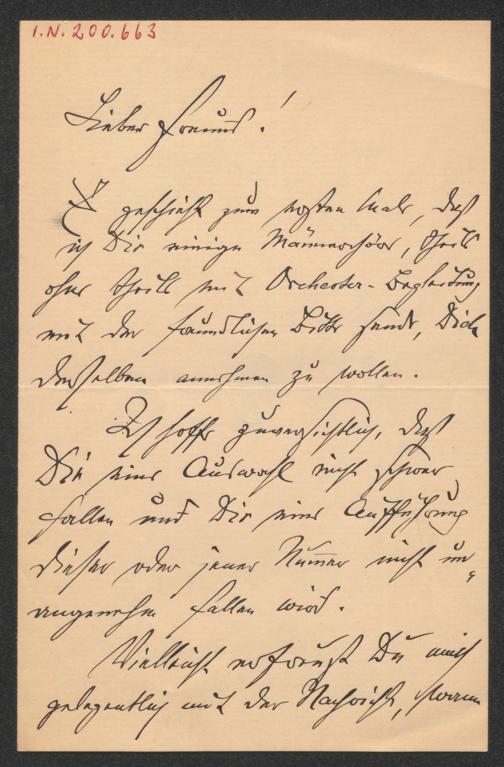 I.N. 200.663
Lieber Freund!
Es geschieht zum ersten Male, daß
ich Dir einige Männerchöre, theils
ohne theils mit Orchester-Begleitung
mit der freundlichen Bitte sende, Dich
derselben annehmen zu wollen.
Ich hoffe zuversichtlich, daß
Dir eine Auswahl nicht schwer
fallen und Dir eine Aufführung
dieser oder jener Nummer nicht un-
angenehm fallen wird.
Vielleicht erfreust Du mich
gelegentlich mit der Nachricht, wann